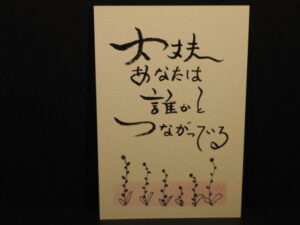 大丈夫
あなたは
誰かと
つながっている